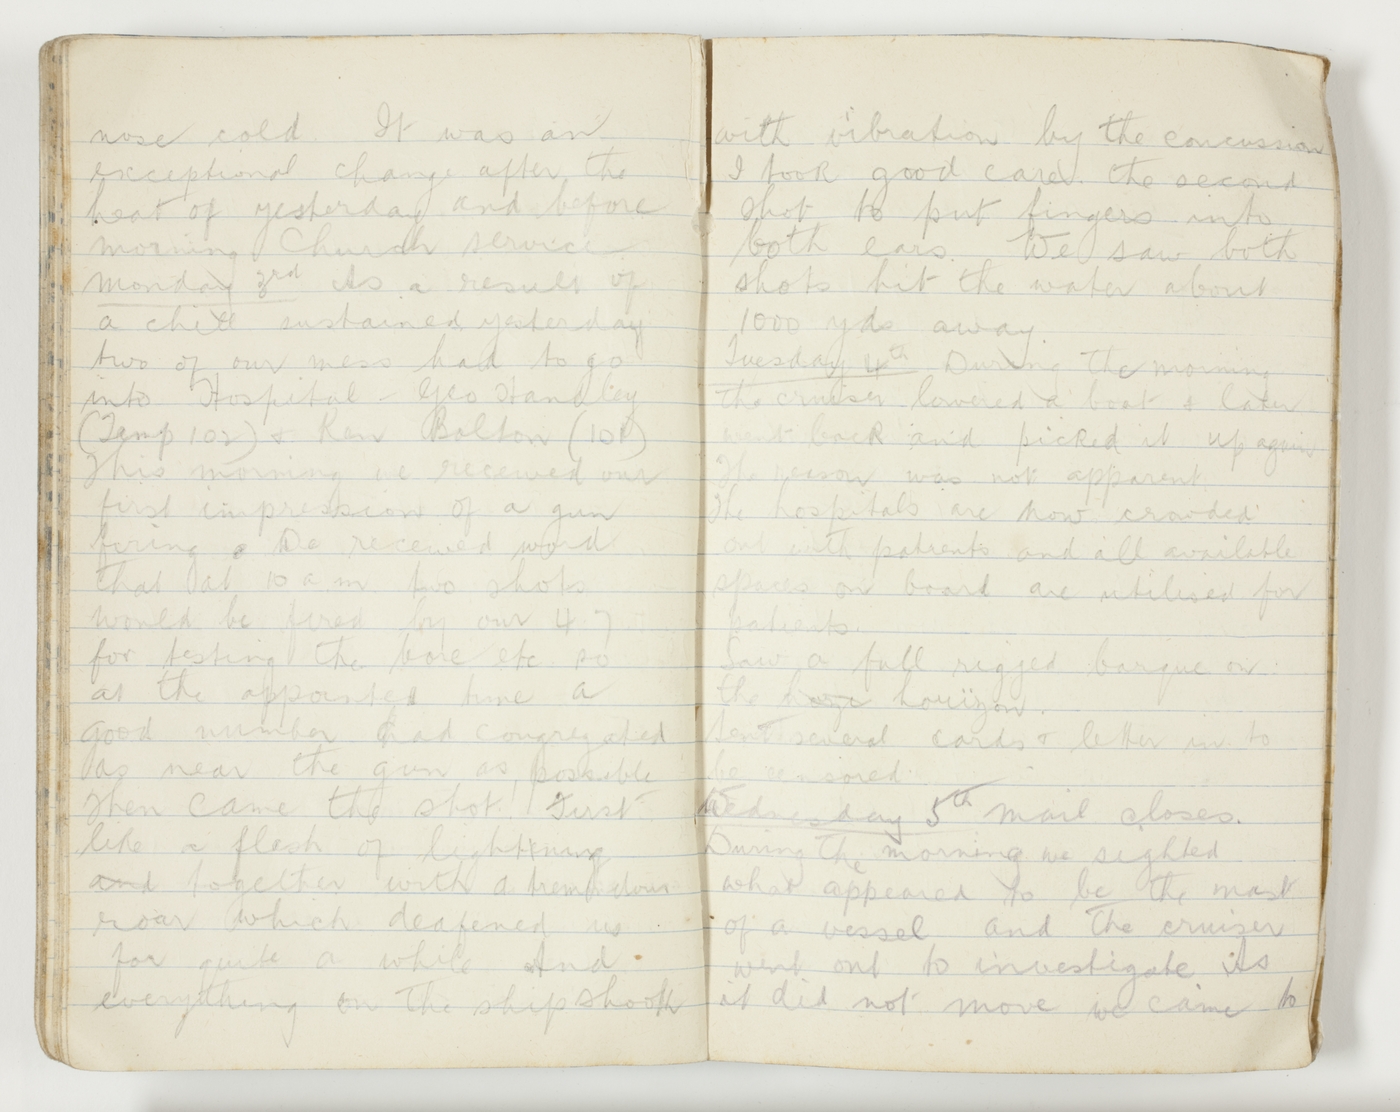 nose cold. It was an
exceptional change after the
heat of yesterday and before
morning Church service
Monday 3rd As a result of
a chill sustained yesterday
two of our mess had to go
into Hospital - Geo Handley
(Temp 102) & Ken Bolton (101)
This morning we received our
first impression of a gun
firing. We received word
that at 10 a.m. two shots
would be fired by our 4.7
for testing the bore etc so
at the appointed time a
good number had congregated
as near the gun as possible
Then came the shot. First
like a flash of lightning
and together with a tremendous
roar which deafened us
for quite a while And
everything on the ship shook
with vibration by the concussion
I took good care the second
shot to put fingers into
both ears. We saw both
shots hit the water about
1000 yds away.
Tuesday 4th During the morning
the cruiser lowered a boat & later
went back and picked it up again
The reason was not apparent
The hospitals are now crowded
out with patients and all available
spaces on board are utilised for
patients.
Saw a full rigged barque on
the horizon.
Sent several cards & letter in to
be censored
Wednesday 5th Mail closes.
During the morning we sighted
what appeared to be the mast
of a vessel and the cruiser
went out to investigate As
it did not move we came to